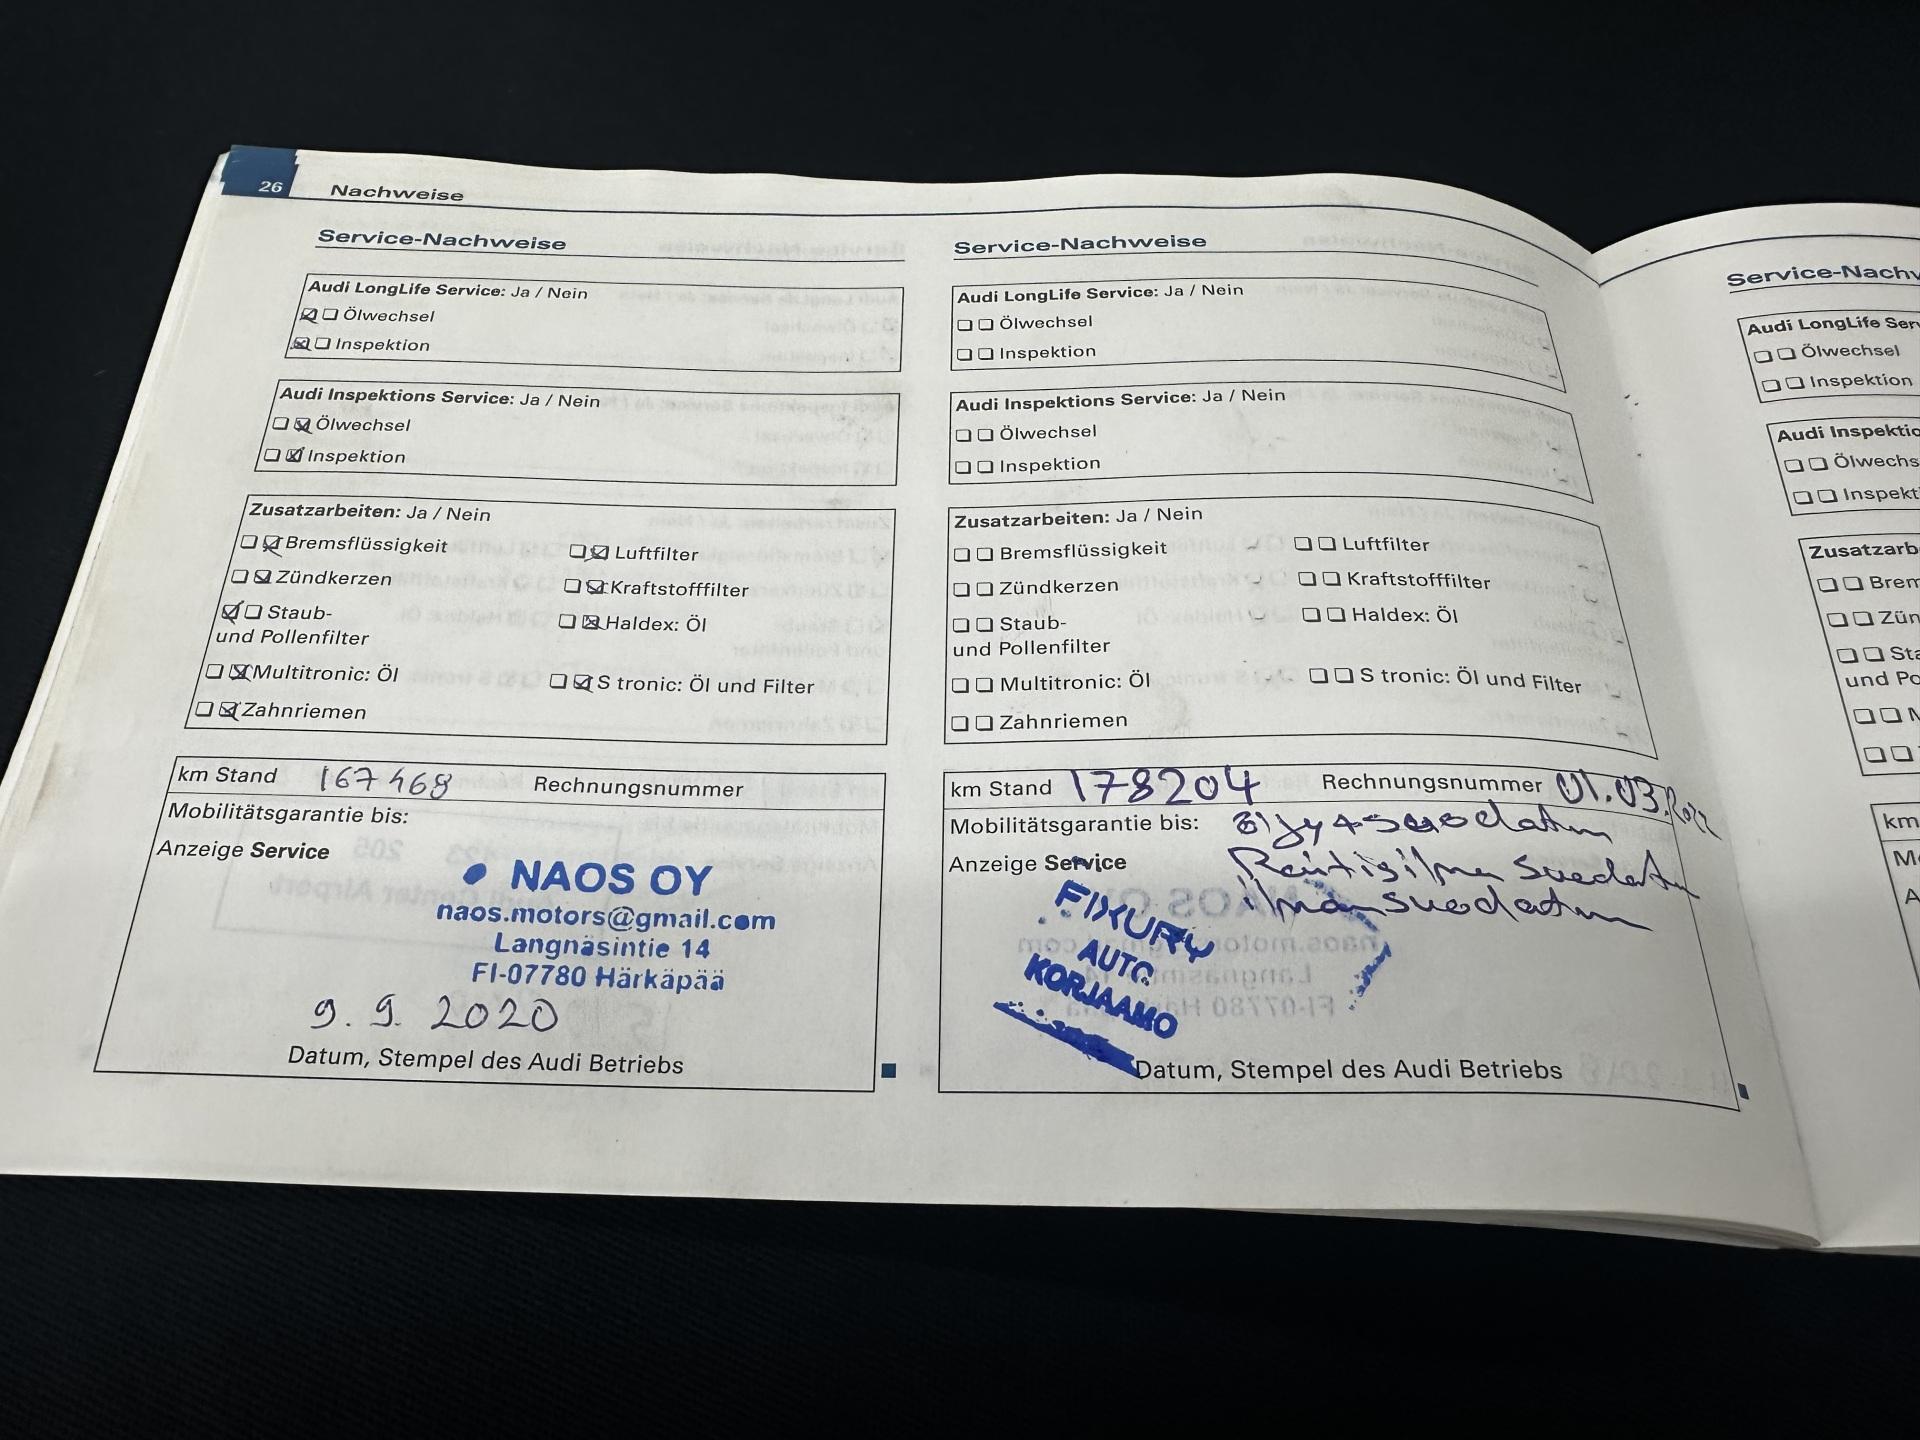 26 Nachweise
Service-Nachweise
Audi LongLife Service: Ja / Nein
Ölwechsel
Inspektion
Audi Inspektions Service: Ja / Nein
Ölwechsel
Inspektion
Zusatzarbeiten: Ja / Nein
Bremsflüssigkeit Luftfilter
Zündkerzen Kraftstofffilter
Staub- Haldex: Öl
und Pollenfilter
Multitronic: Öl S tronic: Öl und Filter
Zahnriemen
km Stand 167468 Rechnungsnummer
Mobilitätsgarantie bis:
Anzeige Service
NAOS OY
naos.motors@gmail.com
Langnäsintie 14
FI-07780 Härkäpää
9. 9. 2020
Datum, Stempel des Audi Betriebs
Service-Nachweise
Audi LongLife Service: Ja / Nein
Ölwechsel
Inspektion
Audi Inspektions Service: Ja / Nein
Ölwechsel
Inspektion
Zusatzarbeiten: Ja / Nein
Bremsflüssigkeit Luftfilter
Zündkerzen Kraftstofffilter
Staub- Haldex: Öl
und Pollenfilter
Multitronic: Öl S tronic: Öl und Filter
Zahnriemen
km Stand 178204 Rechnungsnummer 01.03.2022
Mobilitätsgarantie bis: Öljy+suodatin
Anzeige Service suodatin
suodatin
FIXURY
AUTO
KORJAAMO
Datum, Stempel des Audi Betriebs
Service-Nachw
Audi LongLife Serv
Ölwechsel
Inspektion
Audi Inspektio
Ölwechs
Inspekt
Zusatzarb
Brem
Zün
Sta
und Po
km